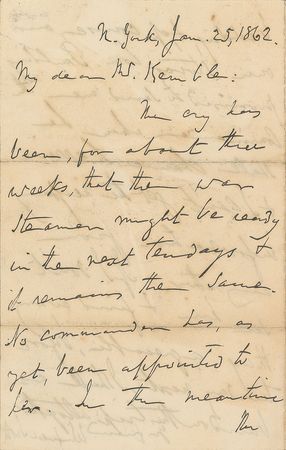 N. York, Jan. 25, 1862.
My dear Mr. Kemble:
The cry has
been, for about three
weeks, that the war
steamer might be ready
in the next ten days &
it remains the same.
No commander has, as
yet, been appointed to
her. In the meantime